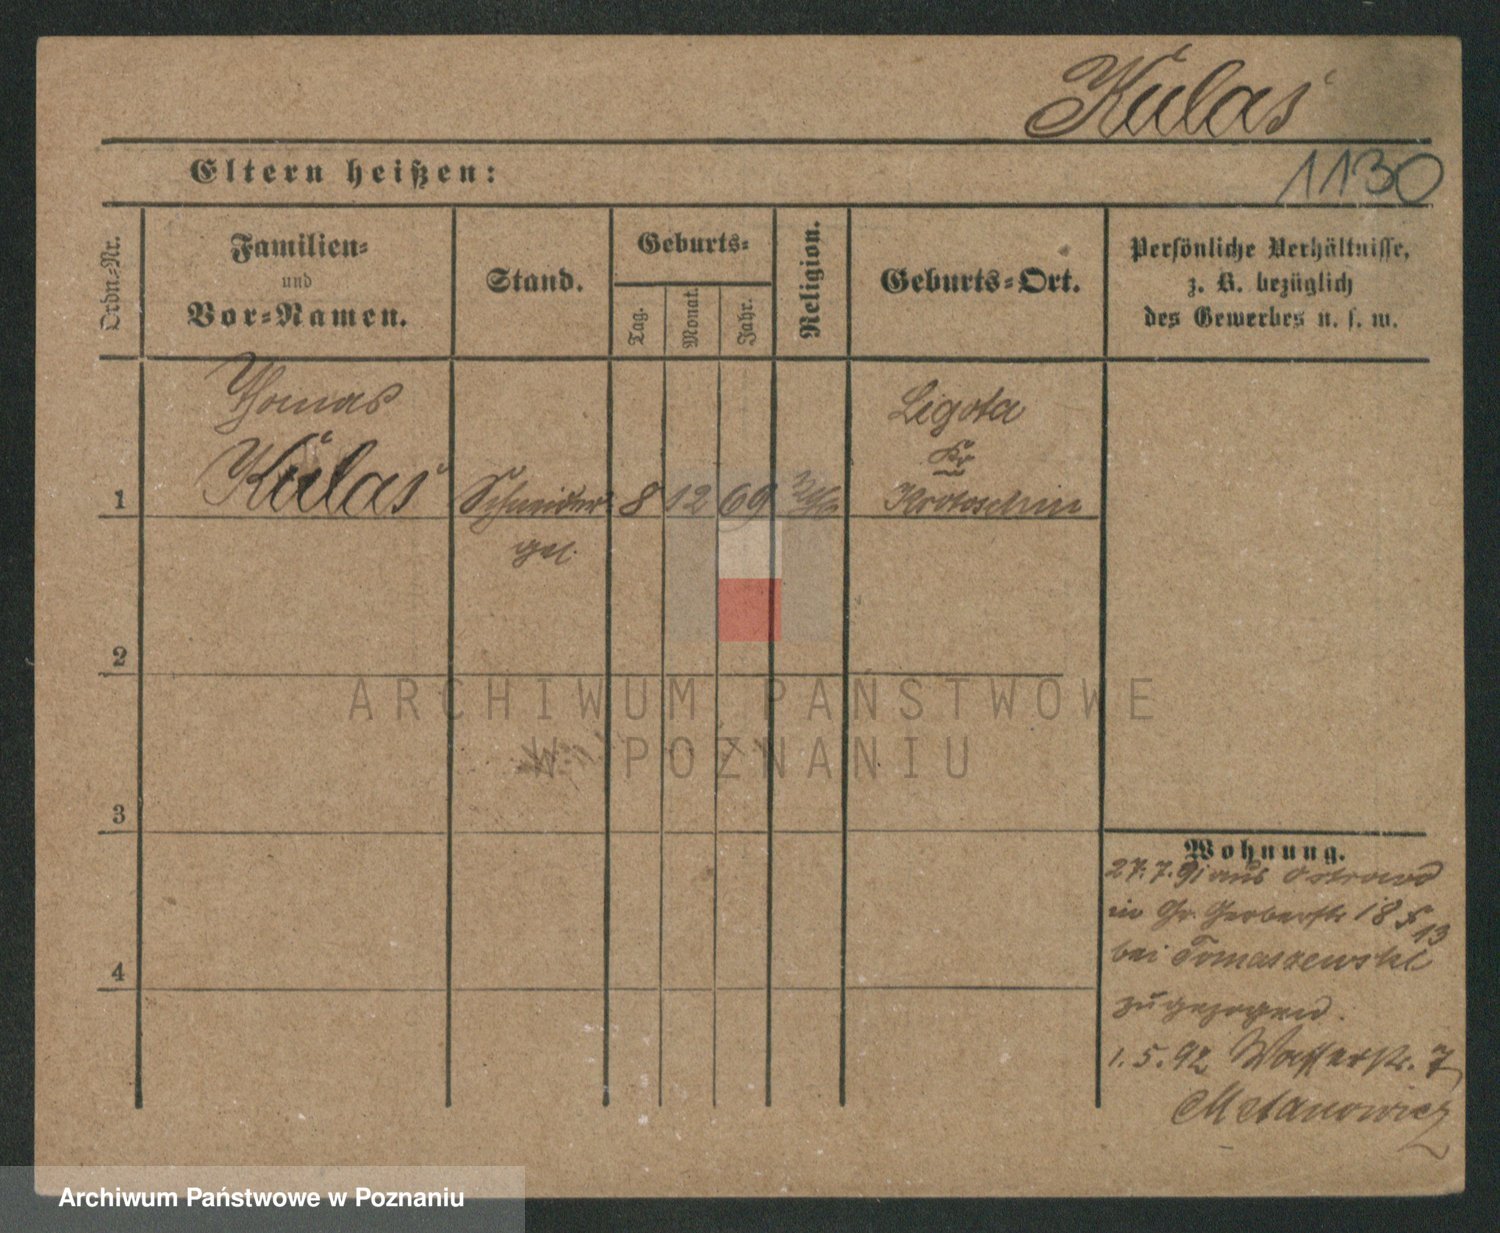 Kulas
1130
Eltern heißen:
Ordn=Nr.
Familien=
und
Vor=Namen.
Stand.
Geburts=
Tag.
Monat.
Jahr.
Religion.
Geburts=Ort.
Persönliche Verhältnisse,
z. B. bezüglich
des Gewerbes u. s. w.
Thomas
Kulas
1
Schneider
ges.
8
12
69
Ligota
Kr
Krotoschin
2
3
4
ARCHIWUM PAŃSTWOWE
W POZNANIU
Wohnung.
27.7.91 aus Ostrowo
in Gr. Gerberstr 18
13
bei Tomaszewski
zugezogen.
1.5.92 Wasserstr. 7
Archiwum Państwowe w Poznaniu